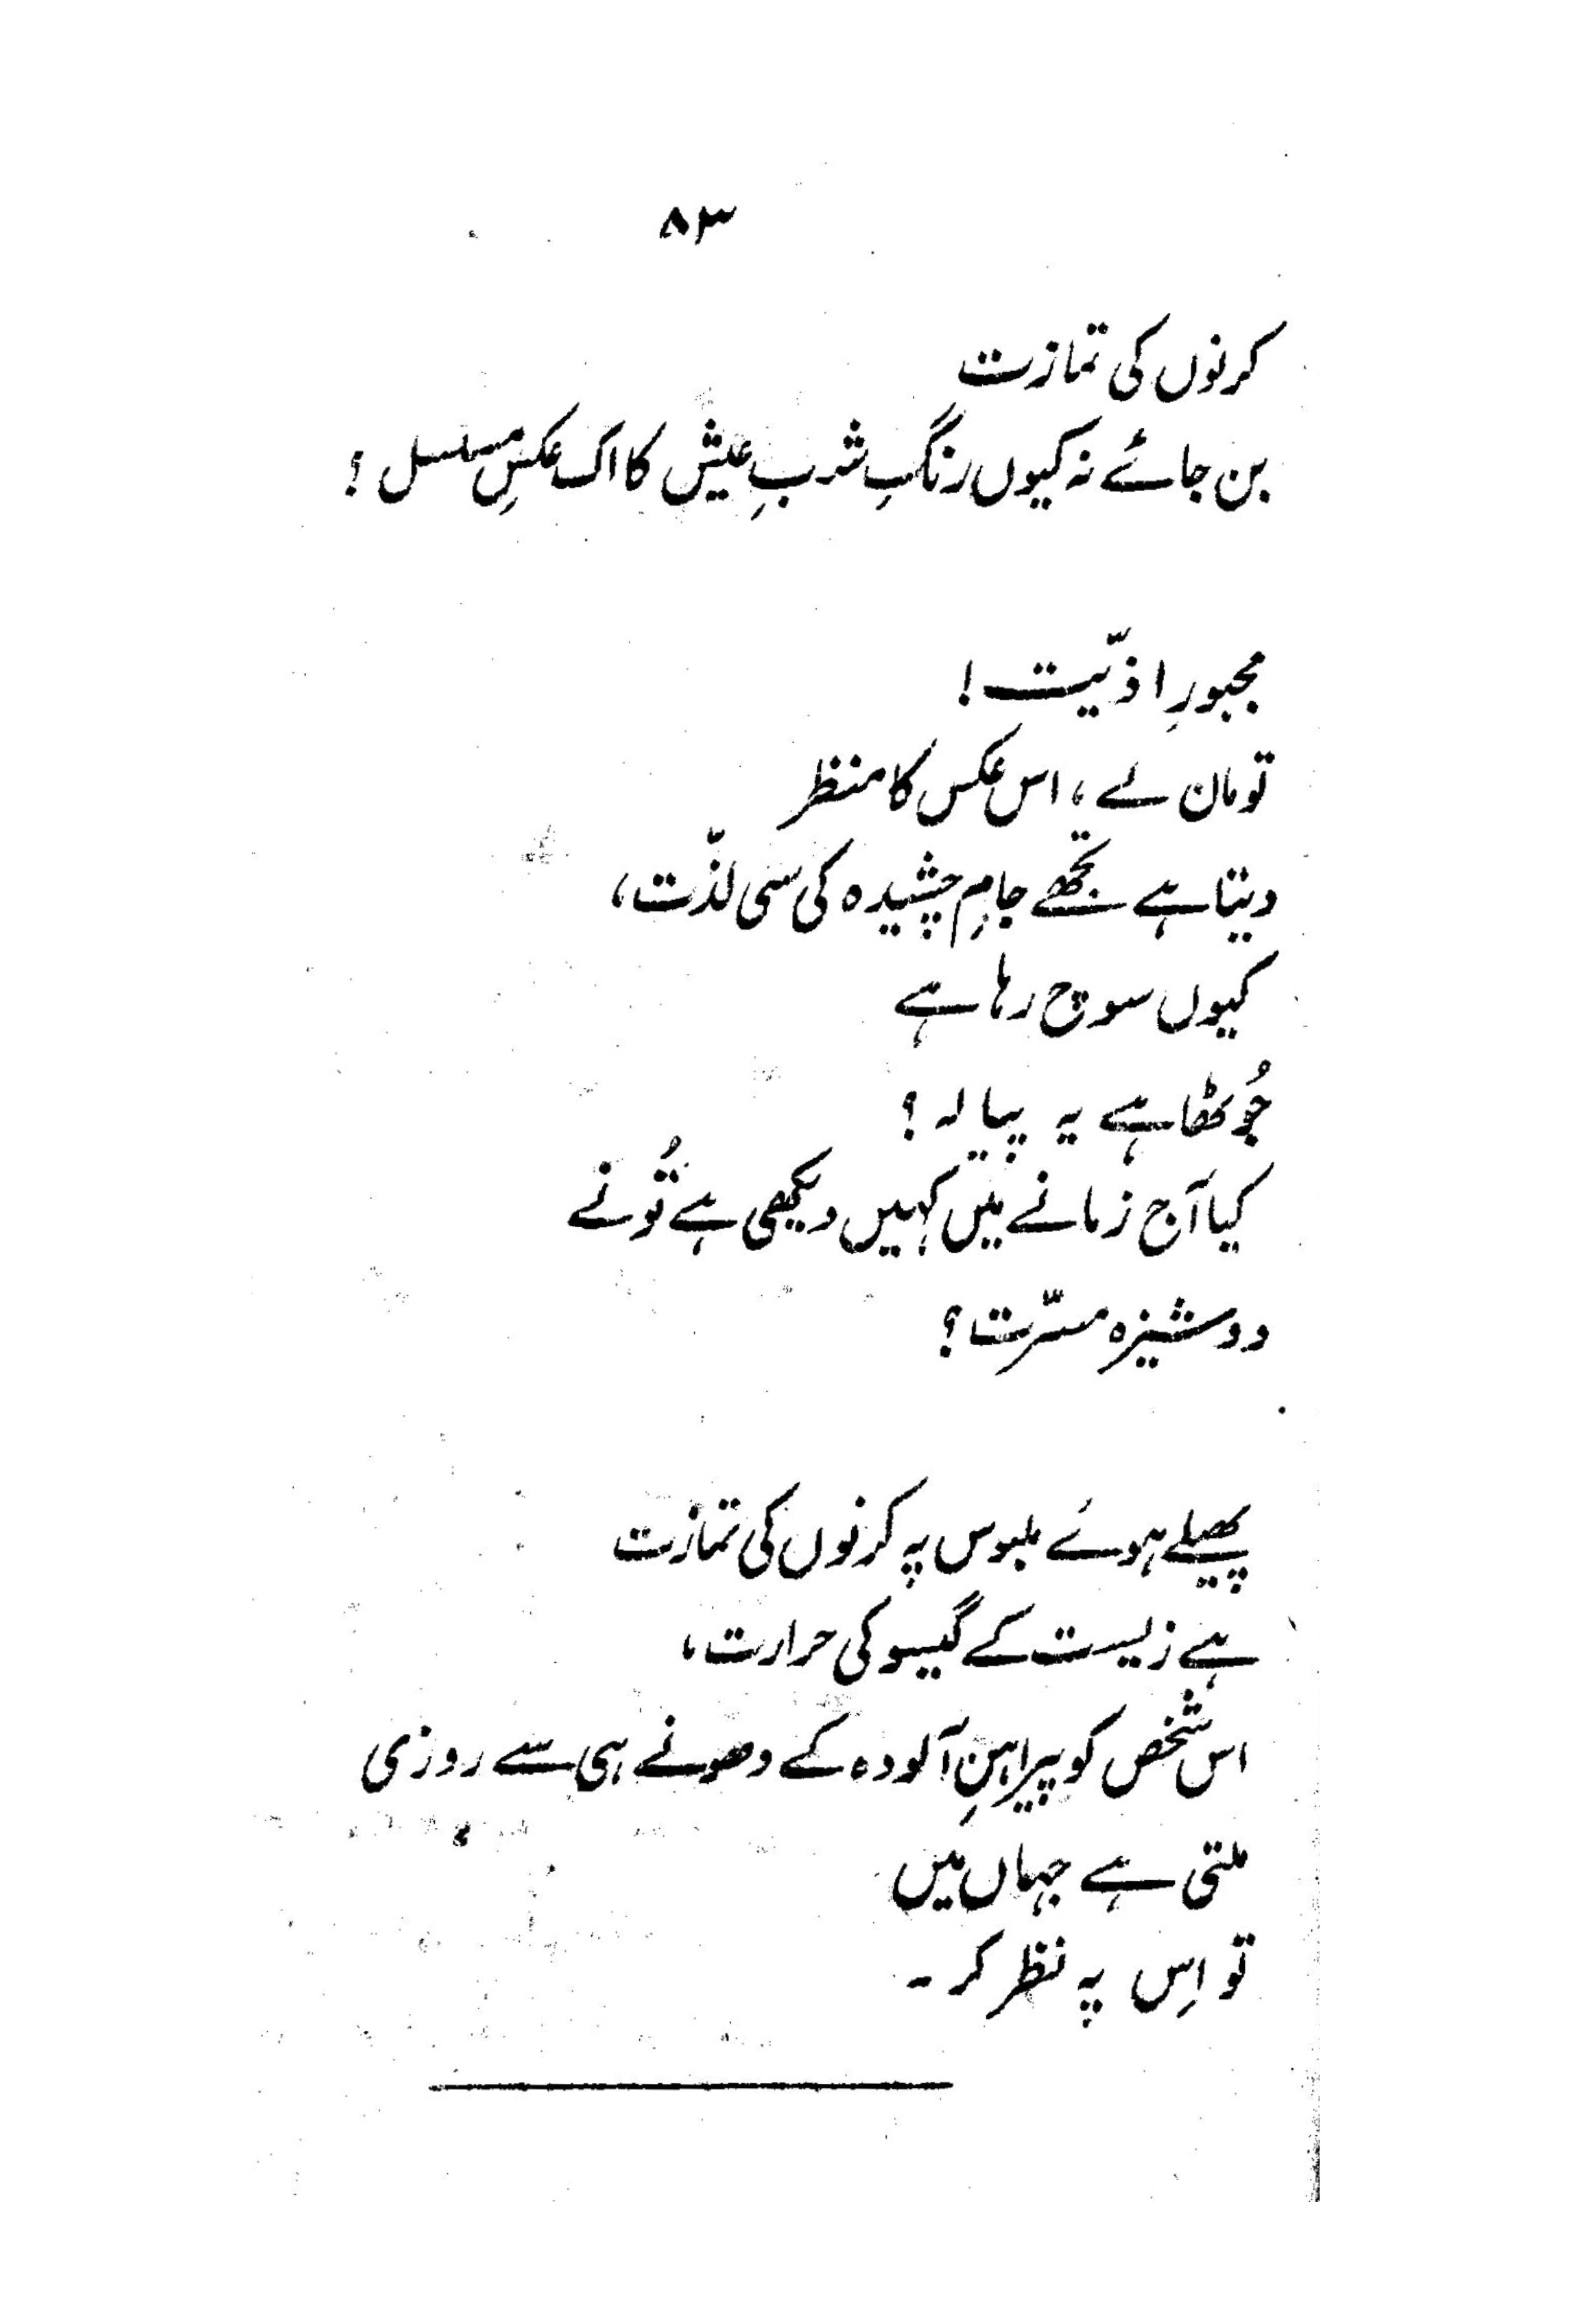 ۸۳
کرنوں کی تمازت
بن جائے نہ کیوں رنگِ شبِ عیش کا اک عکسِ مسلسل ؟
مجبورِ اذیّت !
تو مان لے ، اس عکس کا منظر
دیتا ہے تجھے جامِ چشیدہ کی سی لذّت ،
کیوں سوچ رہا ہے
جُوٹھا ہے یہ پیالہ ؟
کیا آج زمانے میں کہیں دیکھی ہے تُو نے
دوشیزہ مسرّت ؟
پھیلے ہوئے ملبوس پہ کرنوں کی تمازت
ہے زیست کے گیسو کی حرارت ،
اس شخص کو پیراہنِ آلودہ کے دھونے ہی سے روزی
ملتی ہے جہاں میں
تو اِس پہ نظر کر ۔